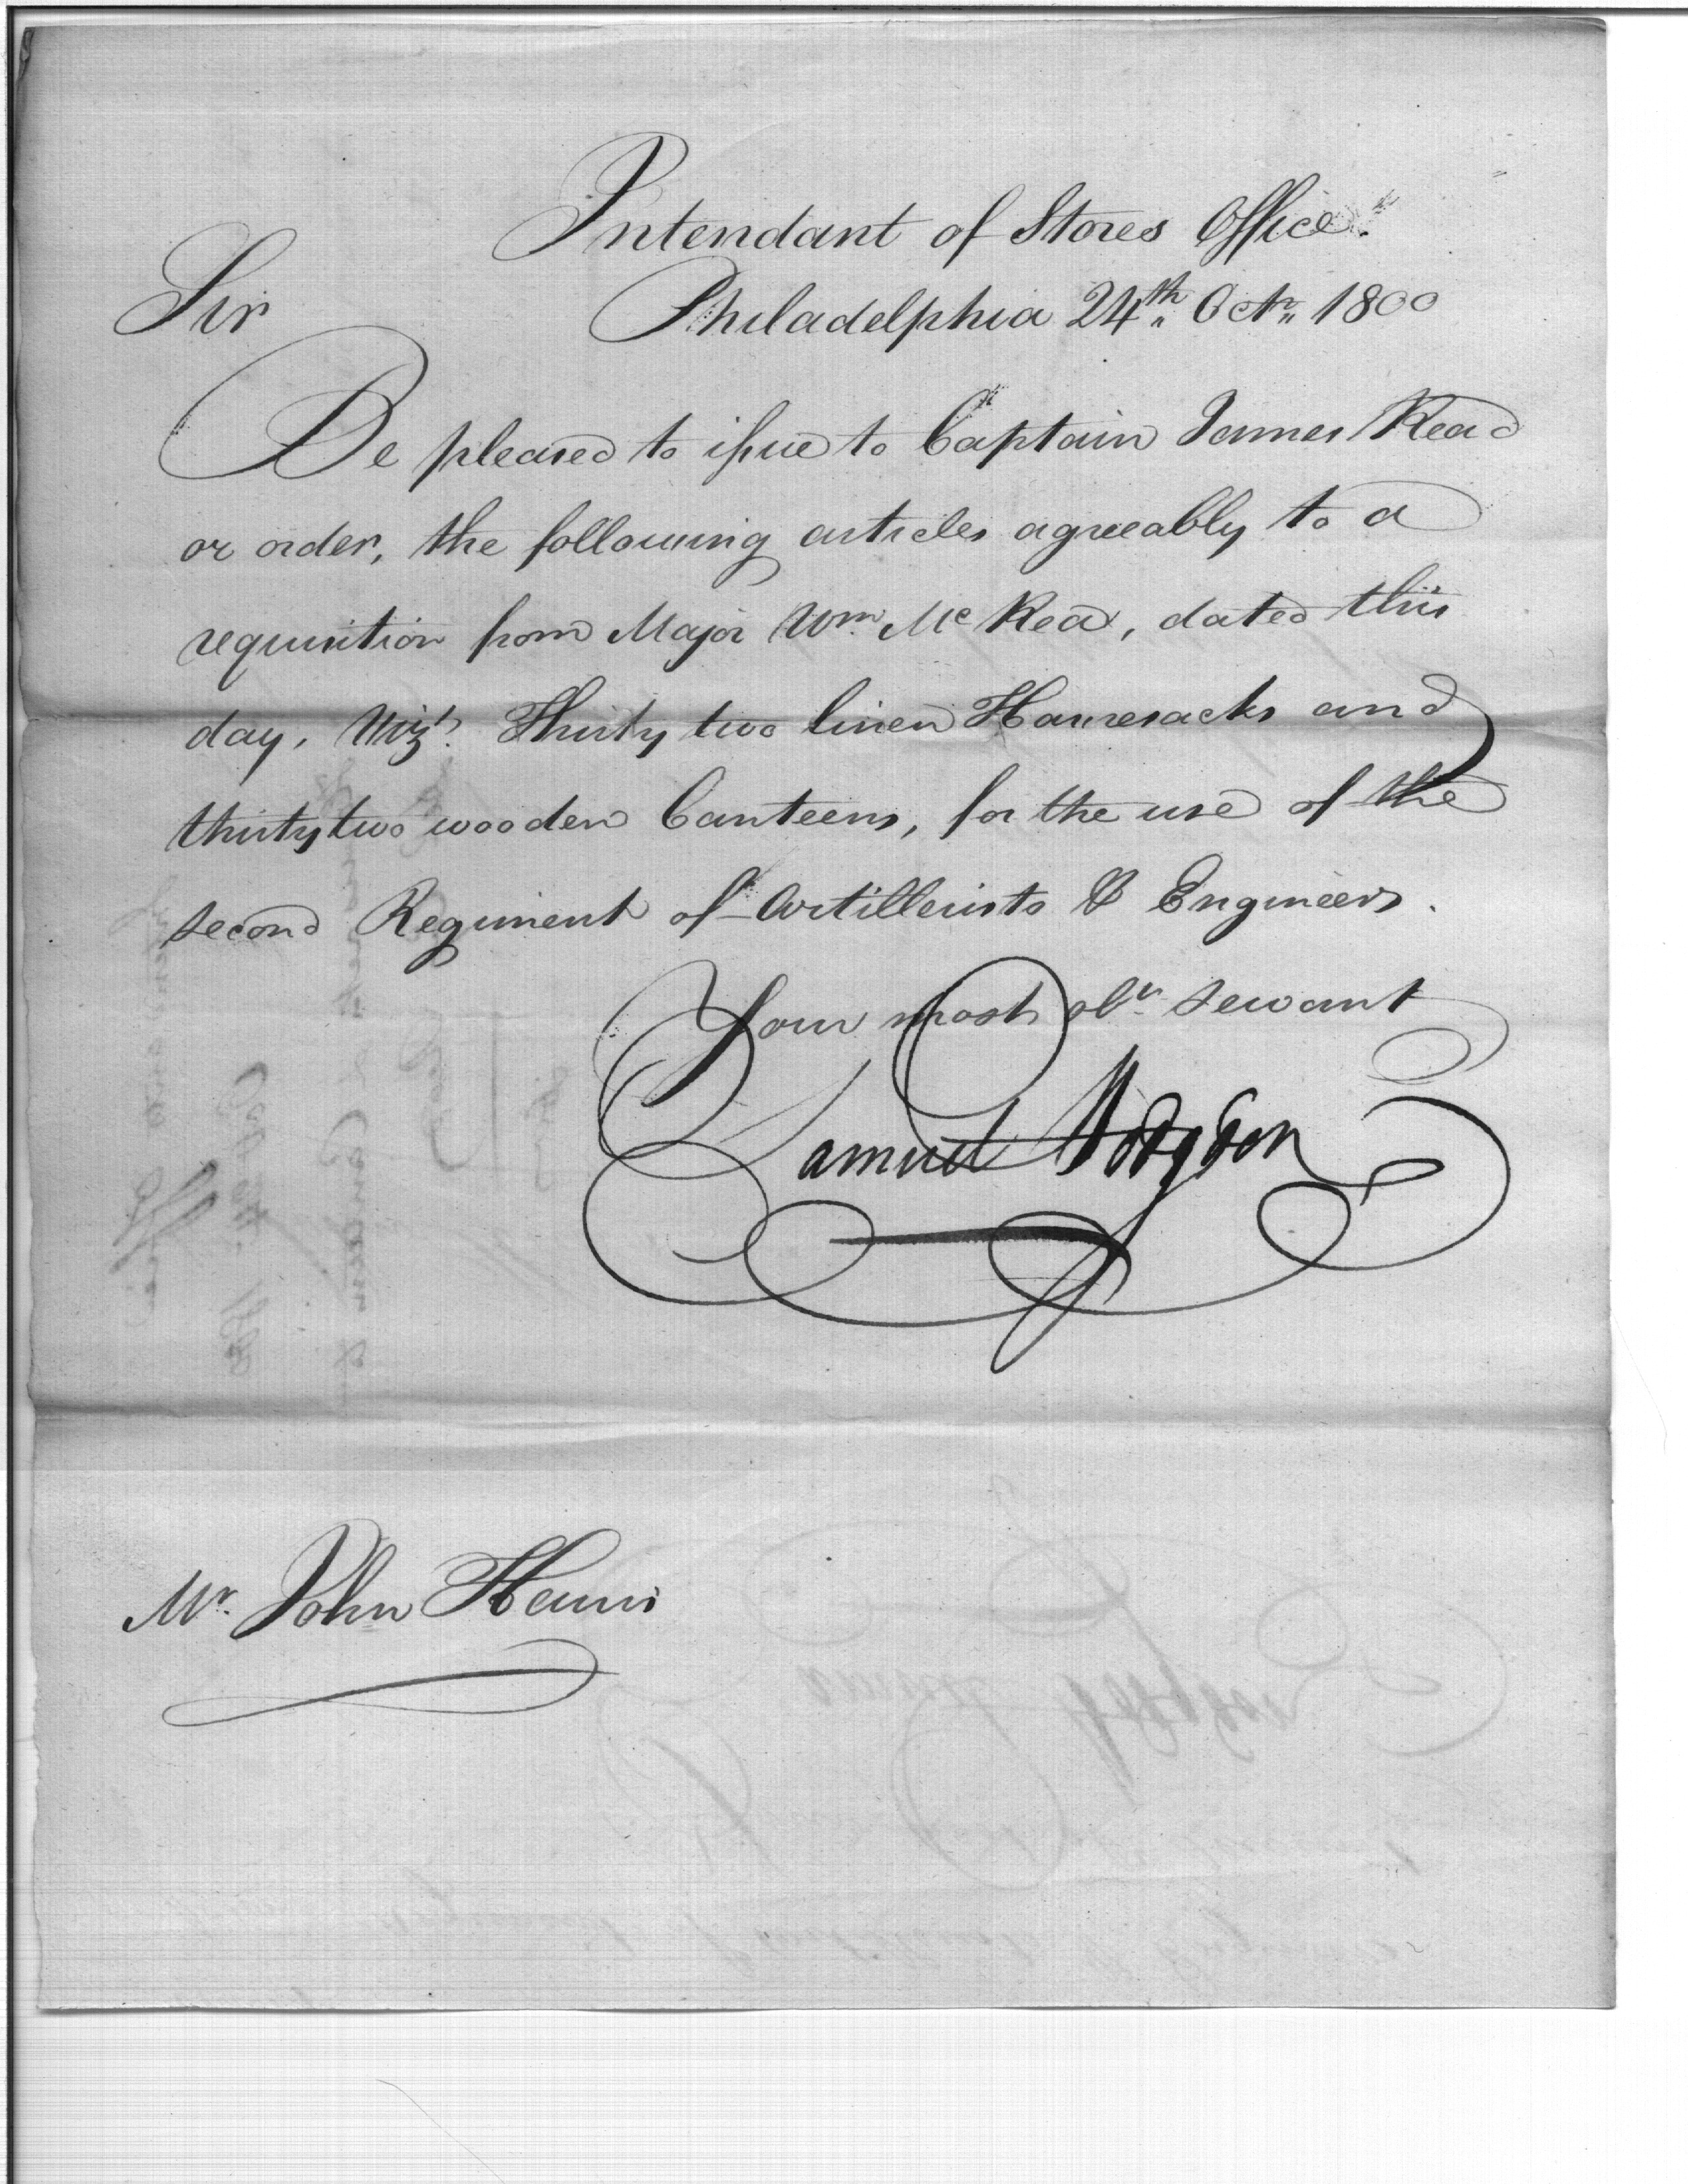 Intendant of Stores Office
Sir
Philadelphia 24th Octr 1800
Be pleased to issue to Captain James Read
or order, the following articles agreeably to a
requisition from Major Wm. Mc Rea, dated this
day, Vizt. Thirty two linen Haversacks and
thirty two wooden Canteens, for the use of the
second Regiment of Artillerists & Engineers.
Your most obt. servant
Samuel Hodgdon
Mr. John Harris